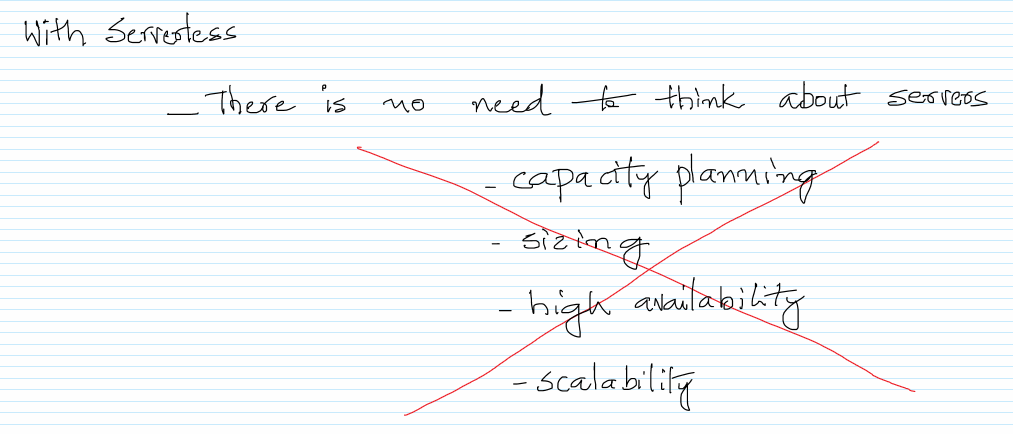 With Serverless
- There is no need to think about servers
- capacity planning
- sizing
- high availability
- scalability